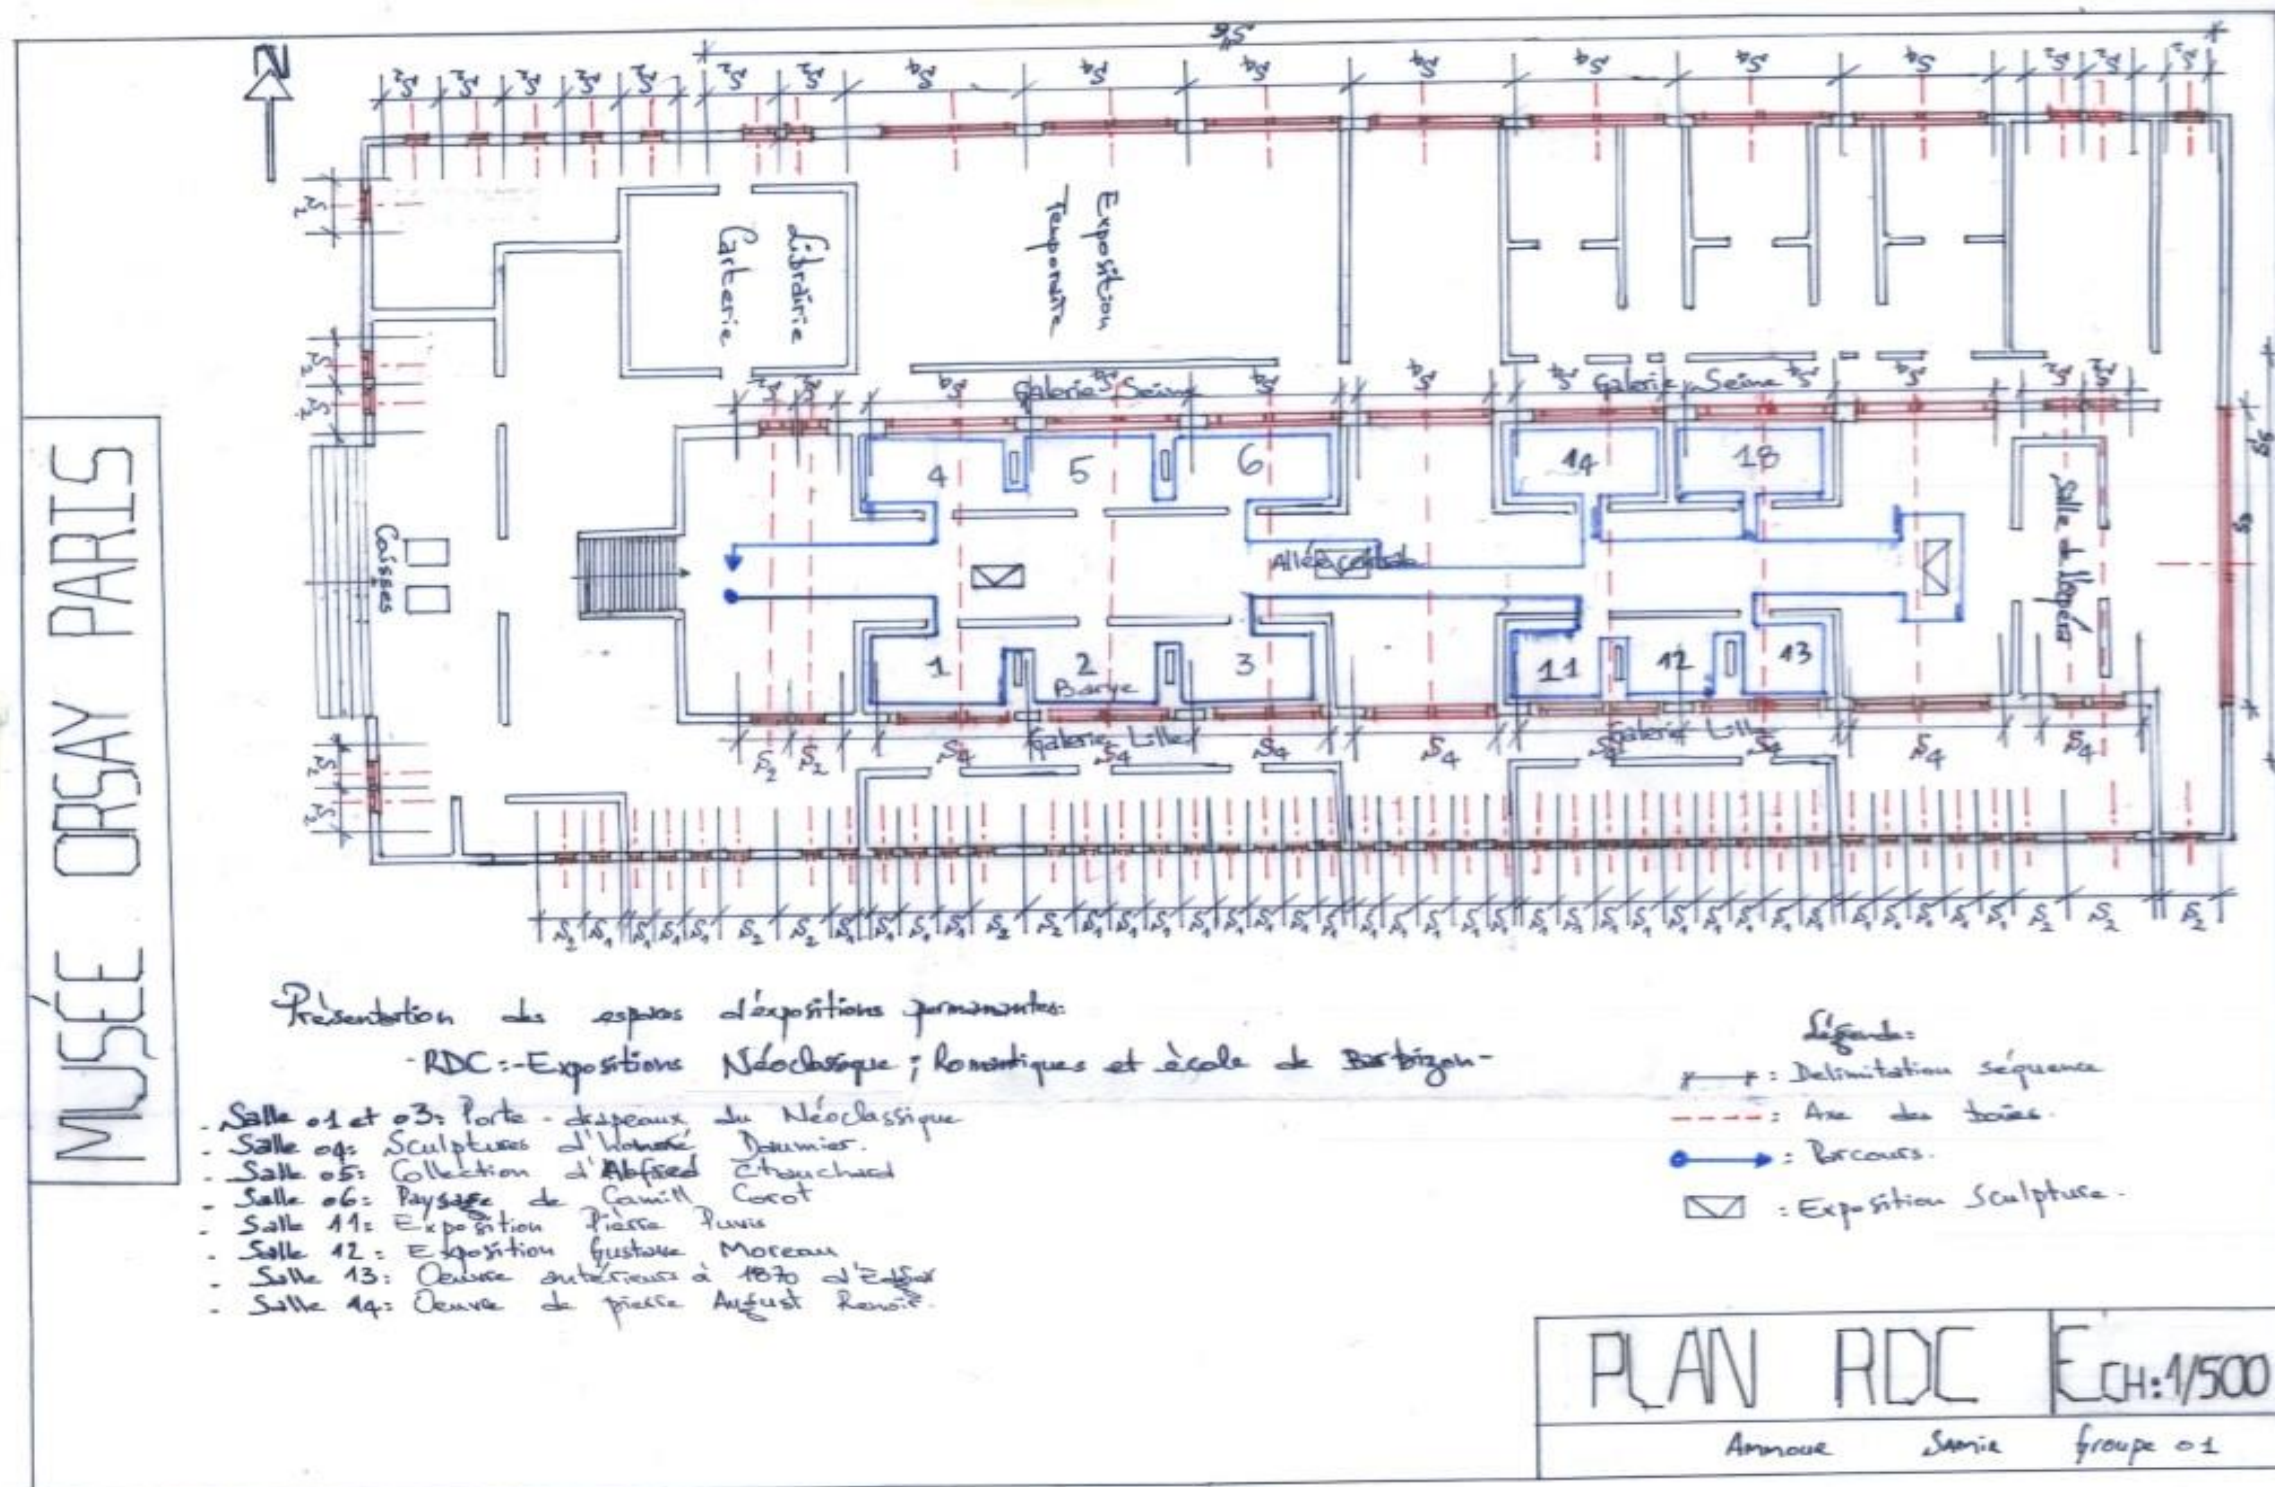 N
MUSÉE ORSAY PARIS
Librairie
Carterie
Exposition
Temporaire
Galerie Seine
Galerie Seine
4
5
6
14
18
Caisses
Allée centrale
Salle de l'opéra
1
2
Barye
3
11
12
13
Galerie Lille
Galerie Lille
S2 S2 S4 S4 S4 S4 S4 S4 S4 S4
Présentation des espaces d'éxpositions permanantes:
-RDC:-Expositions Néoclassique; Romantiques et école de Barbizon-
- Salle 01 et 03: Porte-drapeaux du Néoclassique
- Salle 04: Sculptures d'honoré Daumier.
- Salle 05: Collection d'Alfred Chauchard
- Salle 06: Paysage de Camill Corot
- Salle 11: Exposition Pièrre Puvis
- Salle 12: Exposition Gustave Moreau
- Salle 13: Oeuvre antérieurs à 1870
- Salle 14: Oeuvre de pierre August Renoir.
Légende:
: Delimitation séquence
: Axe des baies.
: Parcours.
: Exposition Sculpture.
PLAN RDC
ECH:1/500
Ammour Samir Groupe 01